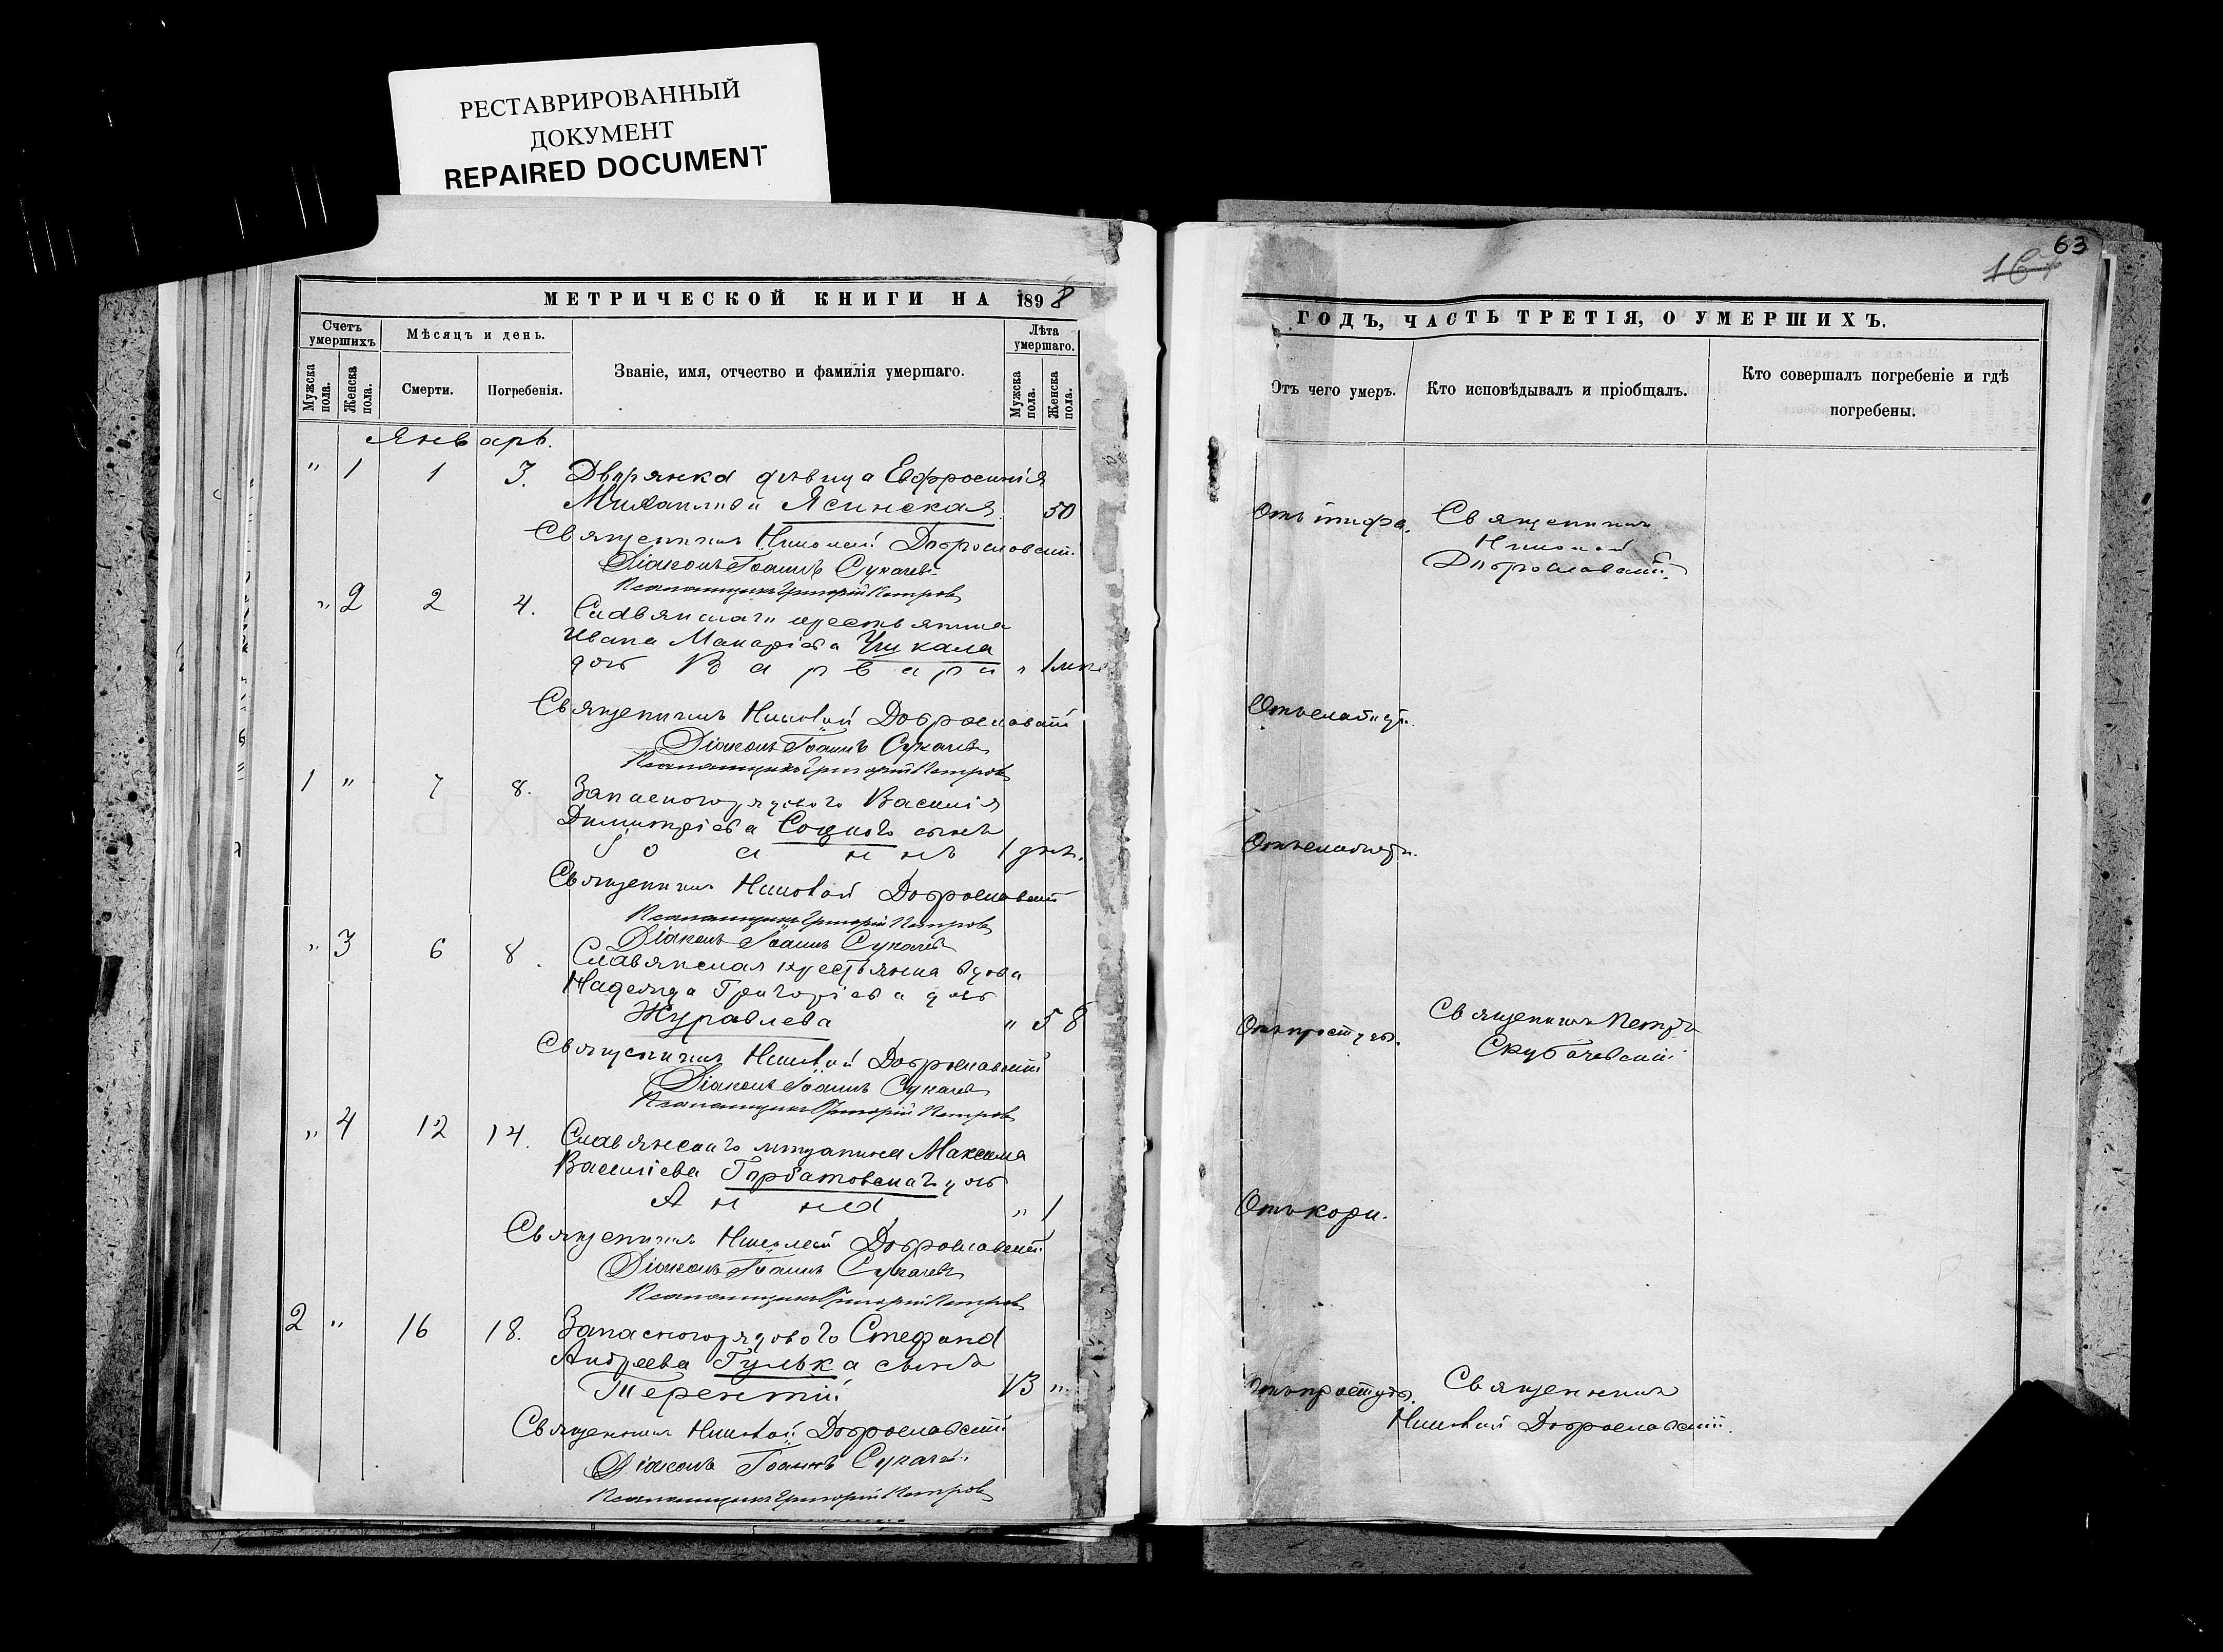 РЕСТАВРИРОВАННЫЙ
ДОКУМЕНТ
REPAIRED DOCUMENT
МЕТРИЧЕСКОЙ КНИГИ НА 1898
Счетъ умершихъ
Мѣсяцъ и день.
Званіе, имя, отчество и фамилія умершаго.
Лѣта умершаго.
Мужска пола.
Женска пола.
Смерти.
Погребенія.
Мужска пола.
Женска пола.
Январь.
" 1 1 3. Дворянка дѣвица Евфросинія
Михаилова Ясинская 50
Священникъ Николай Доброславскій
Діаконъ Іоаннъ Сукачевъ
Псаломщикъ Григорій Петровъ
" 2 2 4. Славянскаго крестьянина
Ивана Макаріева дочь Варвара " 1 мѣс.
Священникъ Николай Доброславскій
Діаконъ Іоаннъ Сукачевъ
Псаломщикъ Григорій Петровъ
1 " 7 8. Запасного рядового Василія
Димитріева Соцкого сынъ
Іоаннъ 1 дня.
Священникъ Николай Доброславскій
Псаломщикъ Григорій Петровъ
Діаконъ Іоаннъ Сукачевъ
" 3 6 8. Славянская крестьянка вдова
Надежда Григоріева дочь
Журавлева " 58
Священникъ Николай Доброславскій
Діаконъ Іоаннъ Сукачевъ
Псаломщикъ Григорій Петровъ
" 4 12 14. Славянскаго мѣщанина Максима
Василіева Горбатовскаго дочь
Анна " 1
Священникъ Николай Доброславскій
Діаконъ Іоаннъ Сукачевъ
Псаломщикъ Григорій Петровъ
2 " 16 18. Запасного рядового Стефана
Андреева Гулька сынъ
Терентій "
Священникъ Николай Доброславскій
Діаконъ Іоаннъ Сукачевъ
Псаломщикъ Григорій Петровъ
63
ГОДЪ, ЧАСТЬ ТРЕТІЯ, О УМЕРШИХЪ.
Отъ чего умеръ.
Кто исповѣдывалъ и пріобщалъ.
Кто совершалъ погребеніе и гдѣ
погребены.
Отъ тифа. Священникъ
Николай
Доброславскій
Отъ слабости.
Отъ слабости.
Отъ простуды. Священникъ Петръ
Скубачевскій
Отъ кори.
Отъ простуды. Священникъ
Николай Доброславскій.